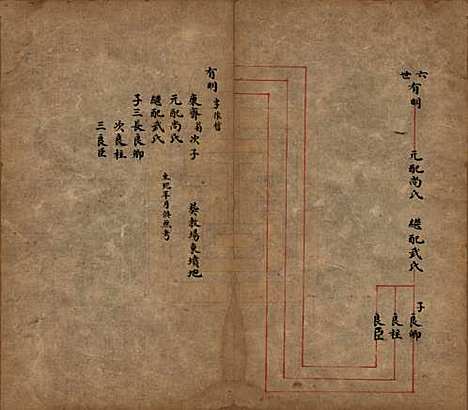 六世
有明
元配尚氏 繼配武氏
子良卿
良柱
良臣
有明
字
東齋翁次子
元配尚氏
繼配武氏
子三長良卿
次良柱
三良臣
葬教場東墳地
生卒年月俟考